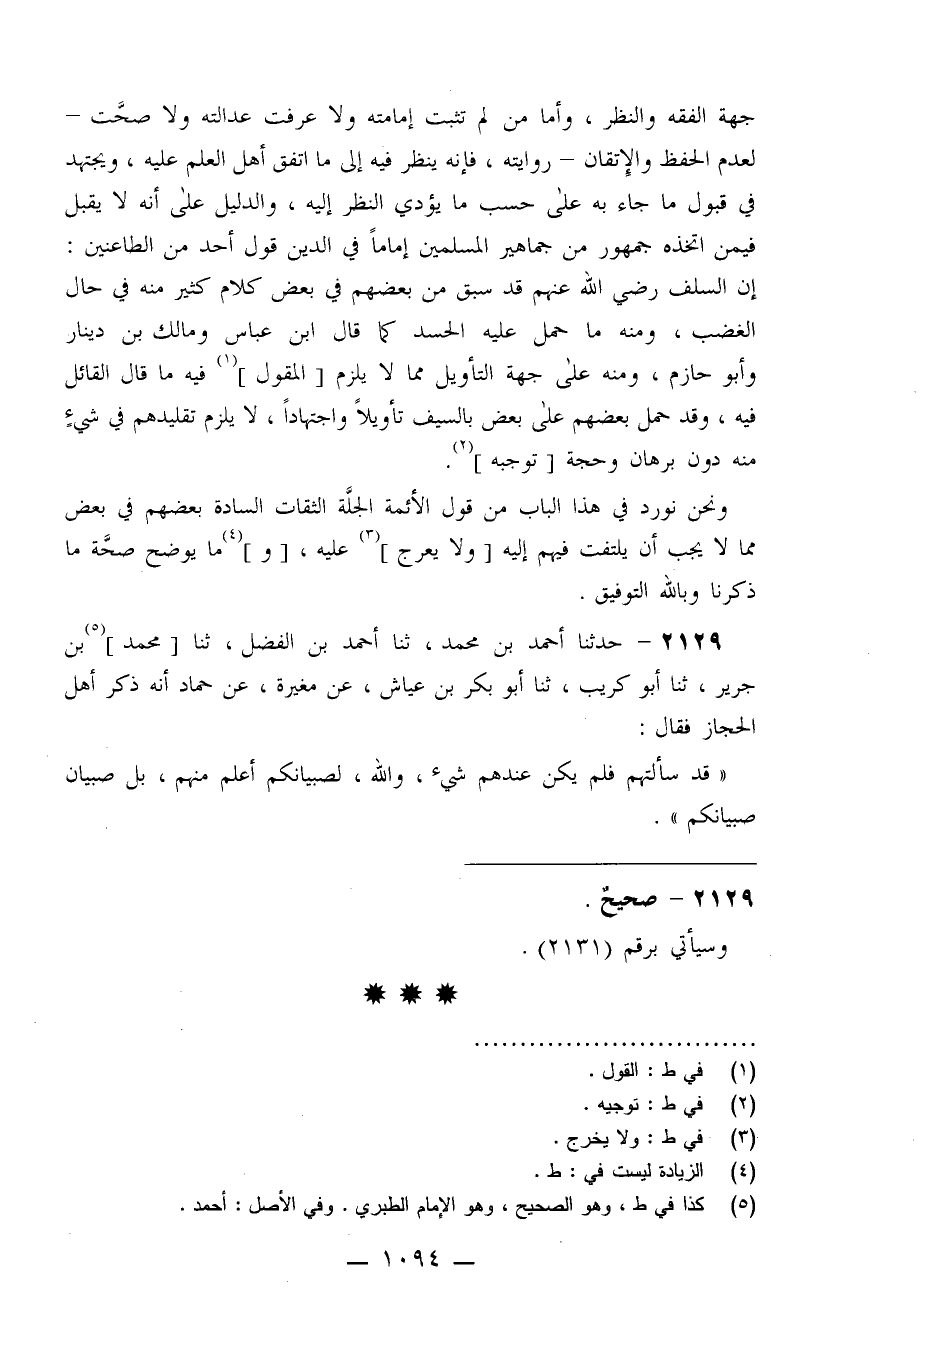 جهة الفقه والنظر ، وأما من لم تثبت إمامته ولا عرفت عدالته ولا صحَّت –
لعدم الحفظ والإتقان – روايته ، فإنه ينظر فيه إلى ما اتفق أهل العلم عليه ، ويجتهد
في قبول ما جاء به علىٰ حسب ما يؤدي النظر إليه ، والدليل علىٰ أنه لا يقبل
فيمن اتخذه جمهور من جماهير المسلمين إماماً في الدين قول أحد من الطاعنين :
إن السلف رضي الله عنهم قد سبق من بعضهم في بعض كلام كثير منه في حال
الغضب ، ومنه ما حمل عليه الحسد كما قال ابن عباس ومالك بن دينار
وأبو حازم ، ومنه علىٰ جهة التأويل مما لا يلزم [ المقول ](١) فيه ما قال القائل
فيه ، وقد حمل بعضهم علىٰ بعض بالسيف تأويلاً واجتهاداً ، لا يلزم تقليدهم في شيءٍ
منه دون برهان وحجة [ توجبه ](٢).
ونحن نورد في هذا الباب من قول الأئمة الجلَّة الثقات السادة بعضهم في بعض
مما لا يجب أن يلتفت فيهم إليه [ ولا يعرج ](٣) عليه ، [ و ](٤)ما يوضح صحَّة ما
ذكرنا وبالله التوفيق .
٢١٢٩ – حدثنا أحمد بن محمد ، ثنا أحمد بن الفضل ، ثنا [ محمد ](٥)بن
جرير ، ثنا أبو كريب ، ثنا أبو بكر بن عياش ، عن مغيرة ، عن حماد أنه ذكر أهل
الحجاز فقال :
« قد سألتهم فلم يكن عندهم شيء ، والله ، لصبيانكم أعلم منهم ، بل صبيان
صبيانكم » .
٢١٢٩ – صحيحٌ .
وسيأتي برقم (٢١٣١) .
✸ ✸ ✸
..............................
(١) في ط : القول .
(٢) في ط : توجيه .
(٣) في ط : ولا يخرج .
(٤) الزيادة ليست في : ط .
(٥) كذا في ط ، وهو الصحيح ، وهو الإمام الطبري . وفي الأصل : أحمد .
— ١٠٩٤ —